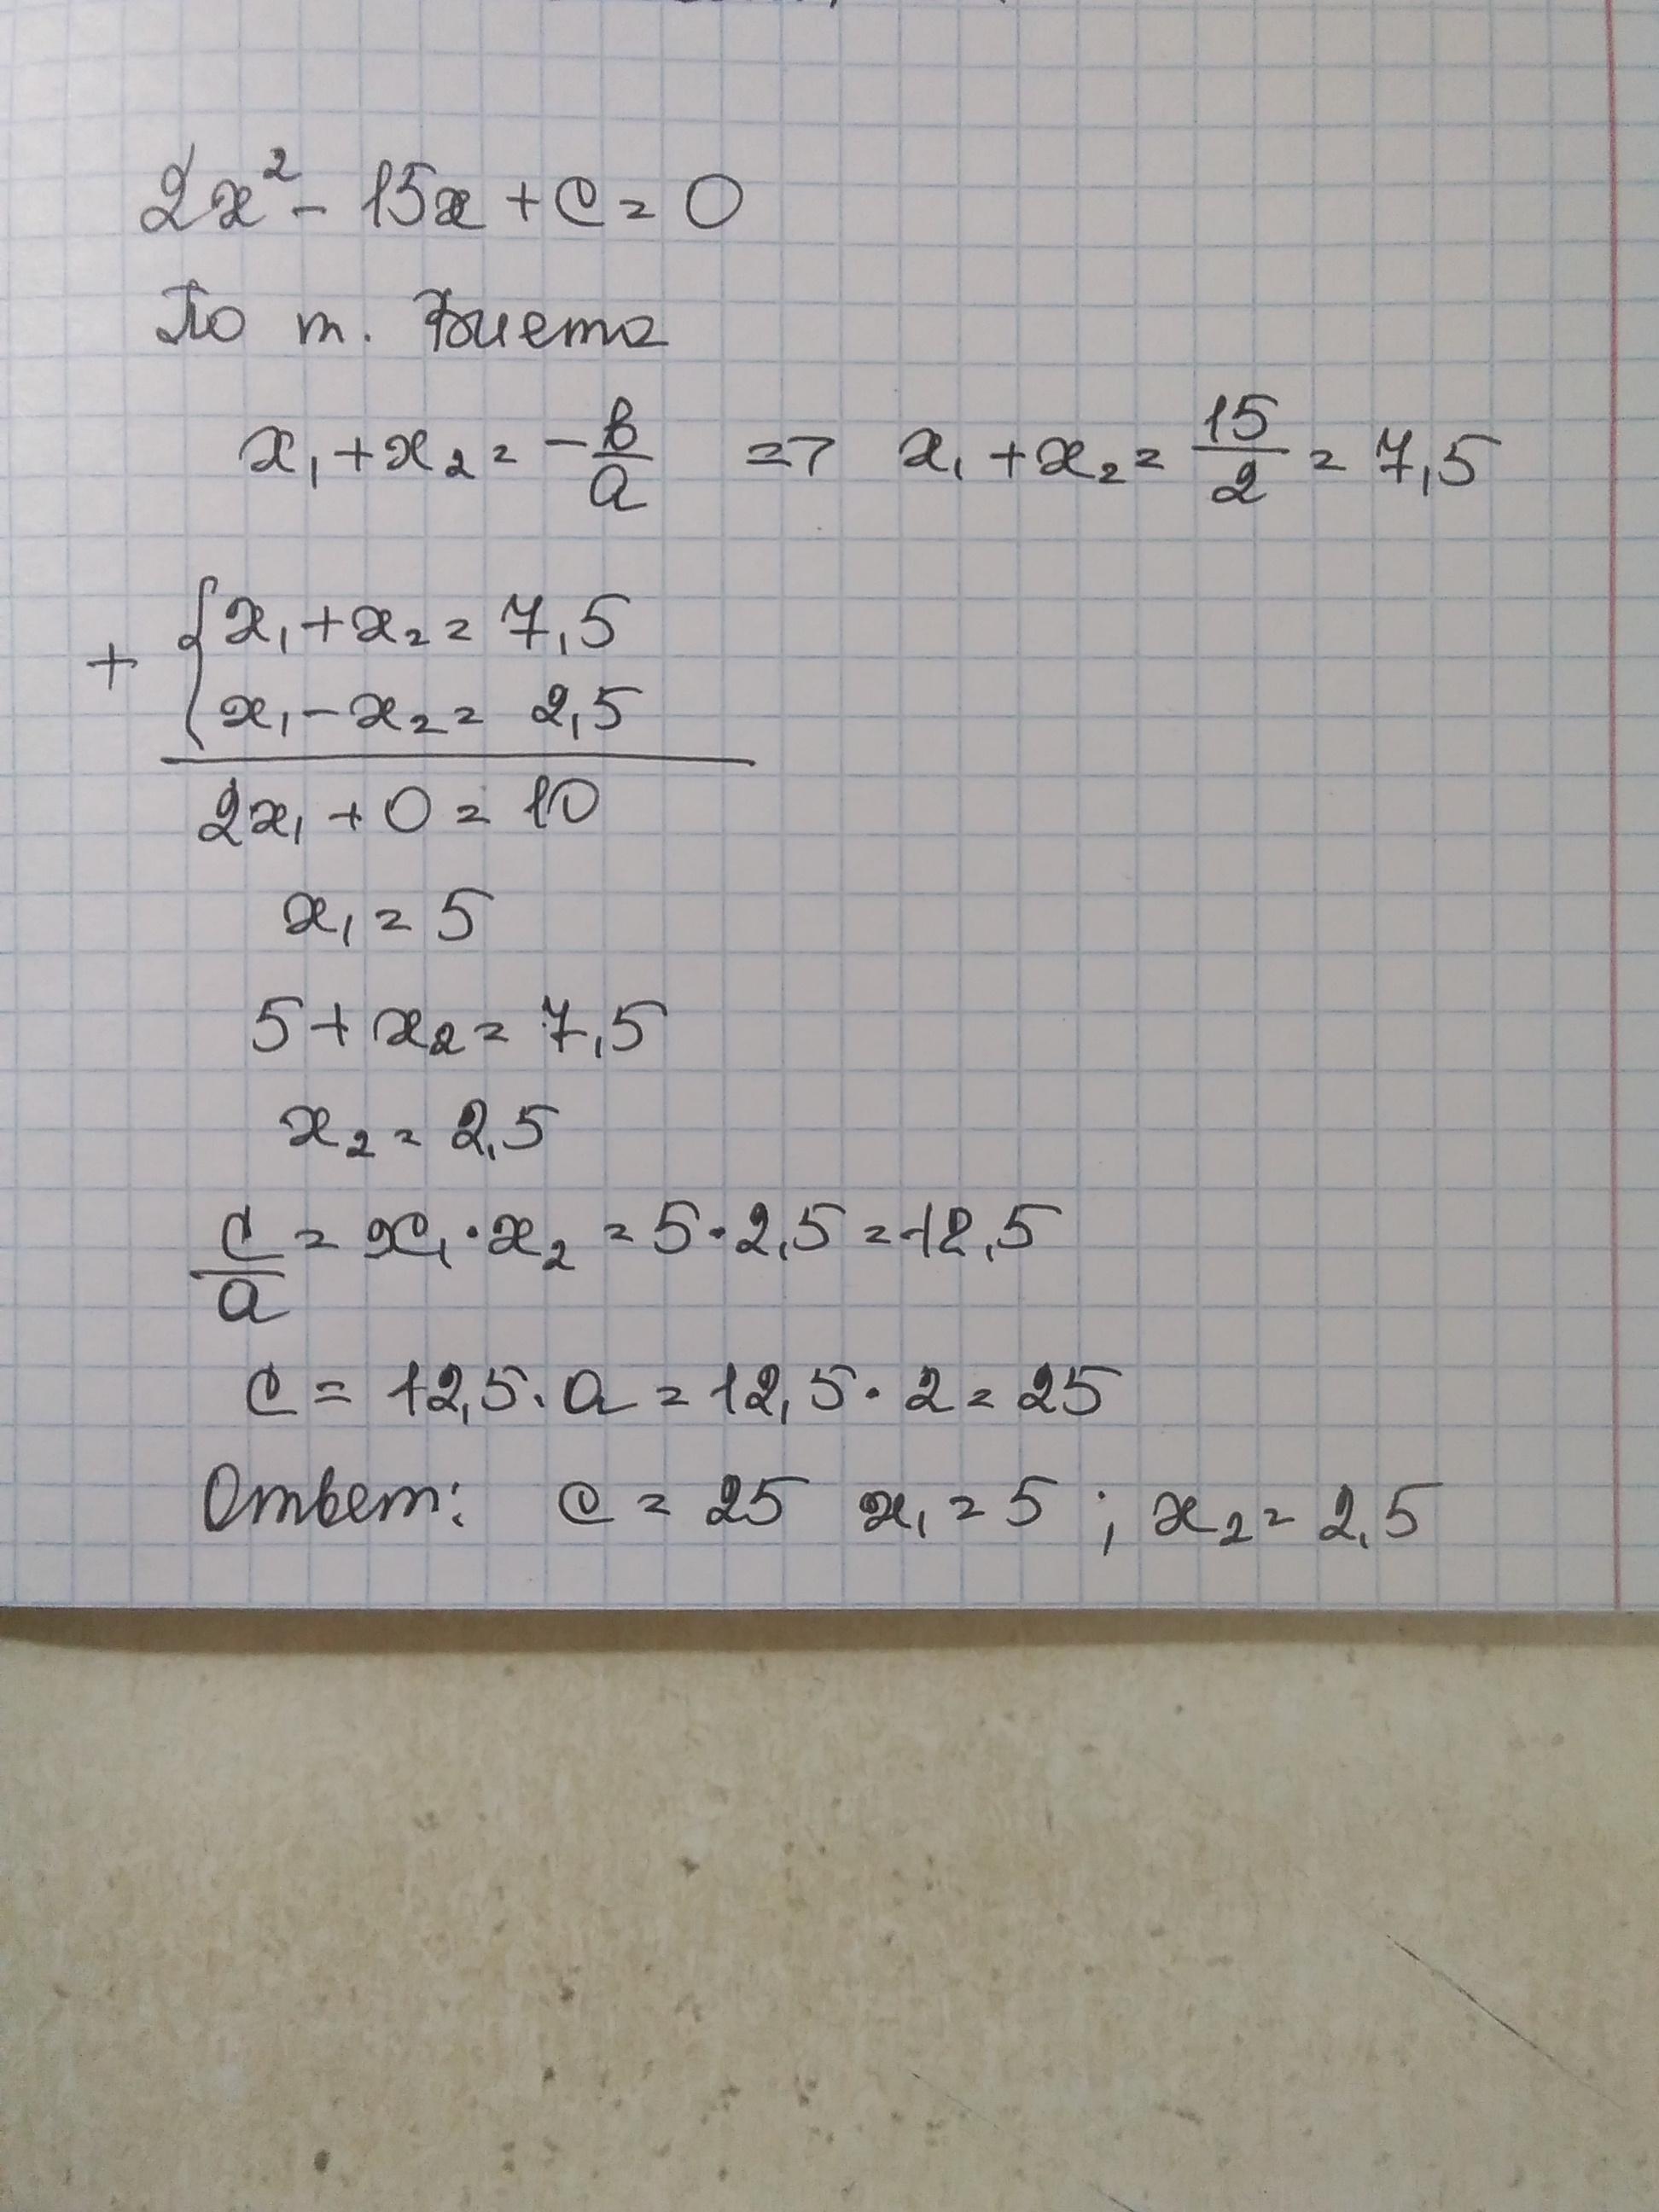 2x² - 15x + c = 0
По т. Виета
x₁ + x₂ = -b/a => x₁ + x₂ = 15/2 = 7,5
+ { x₁ + x₂ = 7,5
x₁ - x₂ = 2,5
2x₁ + 0 = 10
x₁ = 5
5 + x₂ = 7,5
x₂ = 2,5
c/a = x₁ · x₂ = 5 · 2,5 = 12,5
c = 12,5 · a = 12,5 · 2 = 25
Ответ: c = 25 x₁ = 5 ; x₂ = 2,5